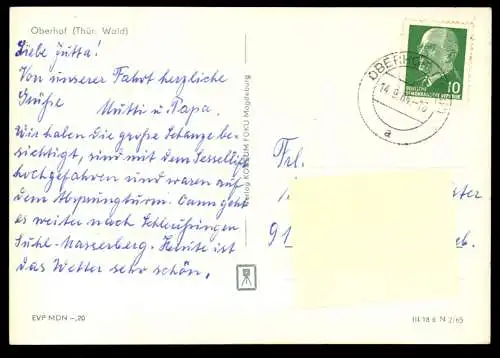 Oberhof (Thür. Wald)
Liebe Jutta!
Von unserer Fahrt herzliche
Grüße Mutti u. Papa.
Wir haben die große Schanze be-
sichtigt, sind mit dem Sessellift
hochgefahren und waren auf
dem Absprungturm. Dann geht
es weiter nach Schleusingen
Suhl-Masserberg. Heute ist
das Wetter sehr schön.
EVP MDN -,20
Verlag KONSUM FOKU Magdeburg
OBERHOF
14.9.65.-16
a
DEUTSCHE
DEMOKRATISCHE REPUBLIK
10
Frl.
91
III 18 6 N 2/65